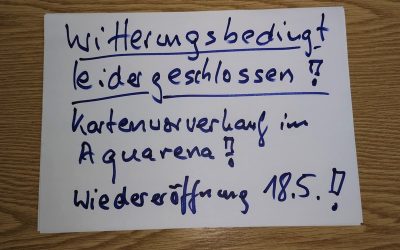 Witterungsbedingt
leider geschlossen !
Kartenvorverkauf im
Aquarena !
Wiedereröffnung 18.5. !